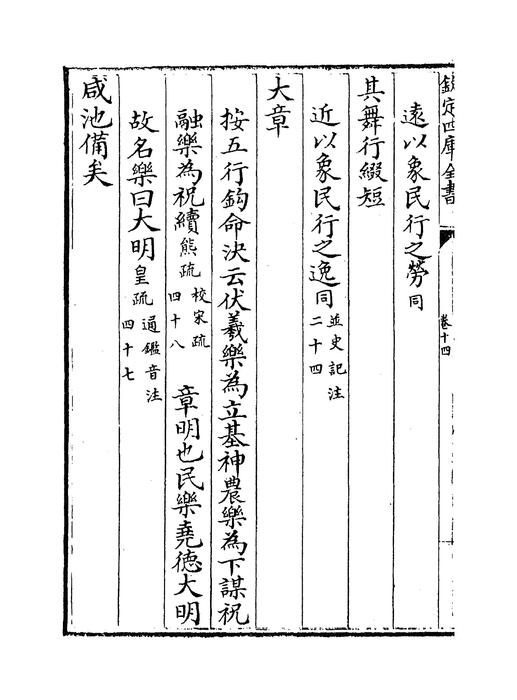 欽定四庫全書
卷十四
遠以象民行之勞同
其舞行綴短
近以象民行之逸同並史記注二十四
大章
按五行鈎命决云伏羲樂為立基神農樂為下謀祝
融樂為祝續熊疏校宋疏四十八章明也民樂堯德大明
故名樂曰大明皇疏通鑑音注四十七
咸池備矣